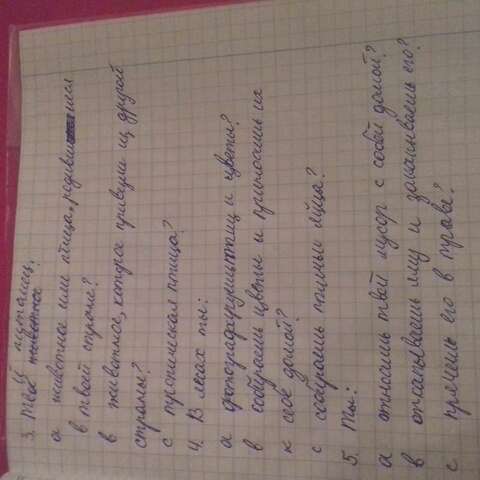 3. Твой питомец:
а животное или птица, родившиеся
в твоей стране?
в животное, которое привезли из другой
страны?
с тропическая птица?
4. В лесах ты:
а фотографируешь птиц и цветы?
в собираешь цветы и приносишь их
к себе домой?
с собираешь птичьи яйца?
5. Ты:
а относишь твой мусор с собой домой?
в откапываешь яму и закапываешь его?
с прячешь его в траве?